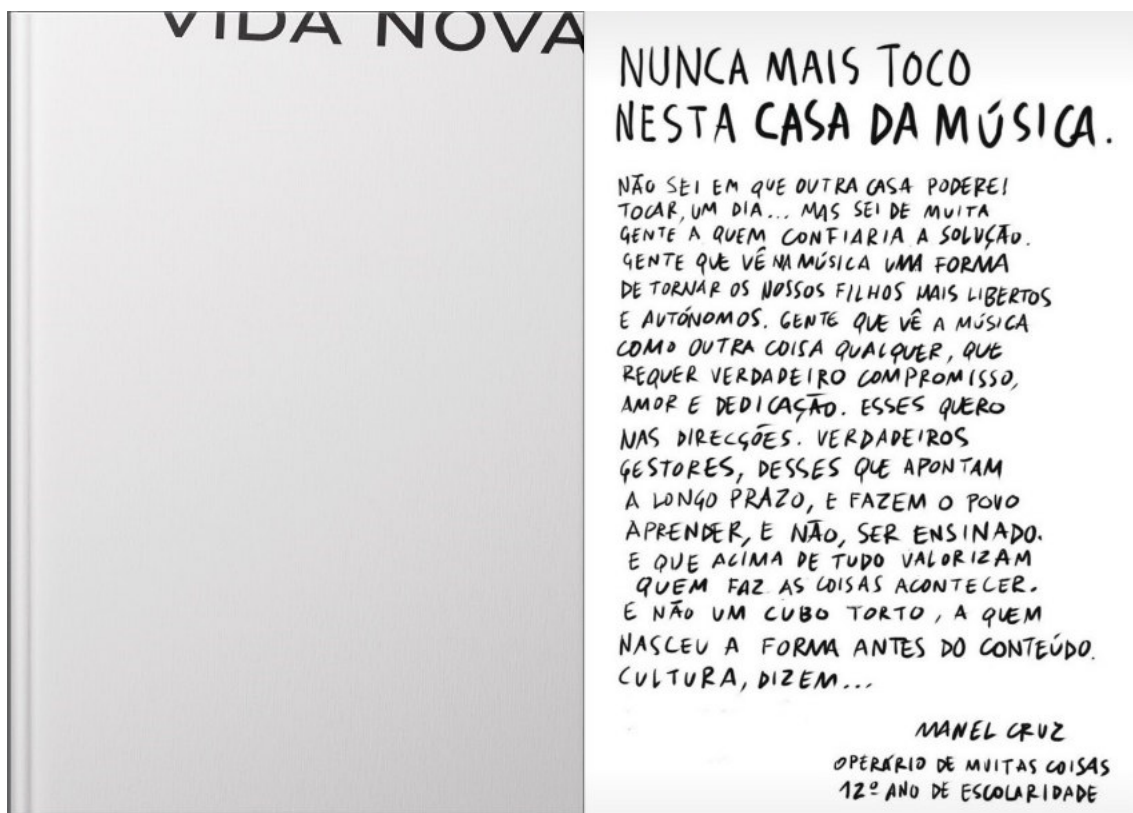 VIDA NOVA
NUNCA MAIS TOCO
NESTA CASA DA MÚSICA.
NÃO SEI EM QUE OUTRA CASA PODEREI
TOCAR, UM DIA... MAS SEI DE MUITA
GENTE A QUEM CONFIARIA A SOLUÇÃO.
GENTE QUE VÊ NA MÚSICA UMA FORMA
DE TORNAR OS NOSSOS FILHOS MAIS LIBERTOS
E AUTÓNOMOS. GENTE QUE VÊ A MÚSICA
COMO OUTRA COISA QUALQUER, QUE
REQUER VERDADEIRO COMPROMISSO,
AMOR E DEDICAÇÃO. ESSES QUERO
NAS DIRECÇÕES. VERDADEIROS
GESTORES, DESSES QUE APONTAM
A LONGO PRAZO, E FAZEM O POVO
APRENDER, E NÃO, SER ENSINADO.
E QUE ACIMA DE TUDO VALORIZAM
QUEM FAZ AS COISAS ACONTECER.
E NÃO UM CUBO TORTO, A QUEM
NASCEU A FORMA ANTES DO CONTEÚDO.
CULTURA, DIZEM...
MANEL CRUZ
OPERÁRIO DE MUITAS COISAS
12º ANO DE ESCOLARIDADE